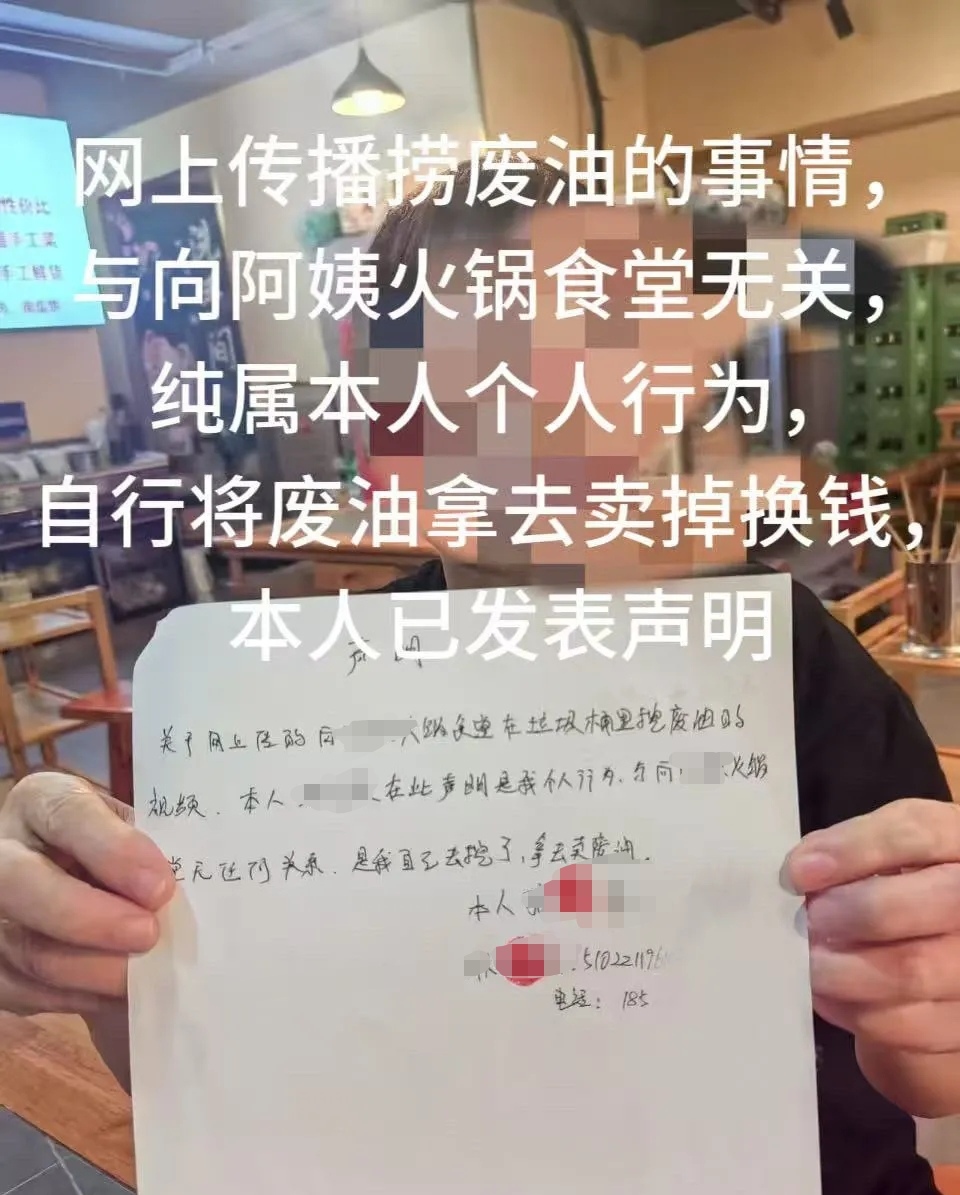 性价比
手工菜
手工鲜货
网上传播捞废油的事情，
与向阿姨火锅食堂无关，
纯属本人个人行为，
自行将废油拿去卖掉换钱，
本人已发表声明
声明
关于网上传的向 火锅食堂在垃圾桶里挖废油的
视频．本人 在此声明是我个人行为．与向 火锅
堂无任何关系．是我自己去挖了，拿去卖废油．
本人
510221196
电话：185